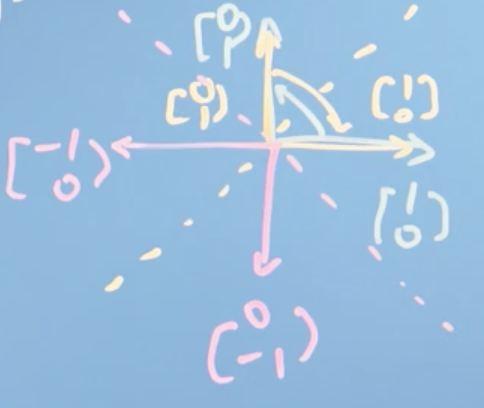 [0
1]
[0
1]
[1
0]
[-1
0]
[1
0]
[0
-1]